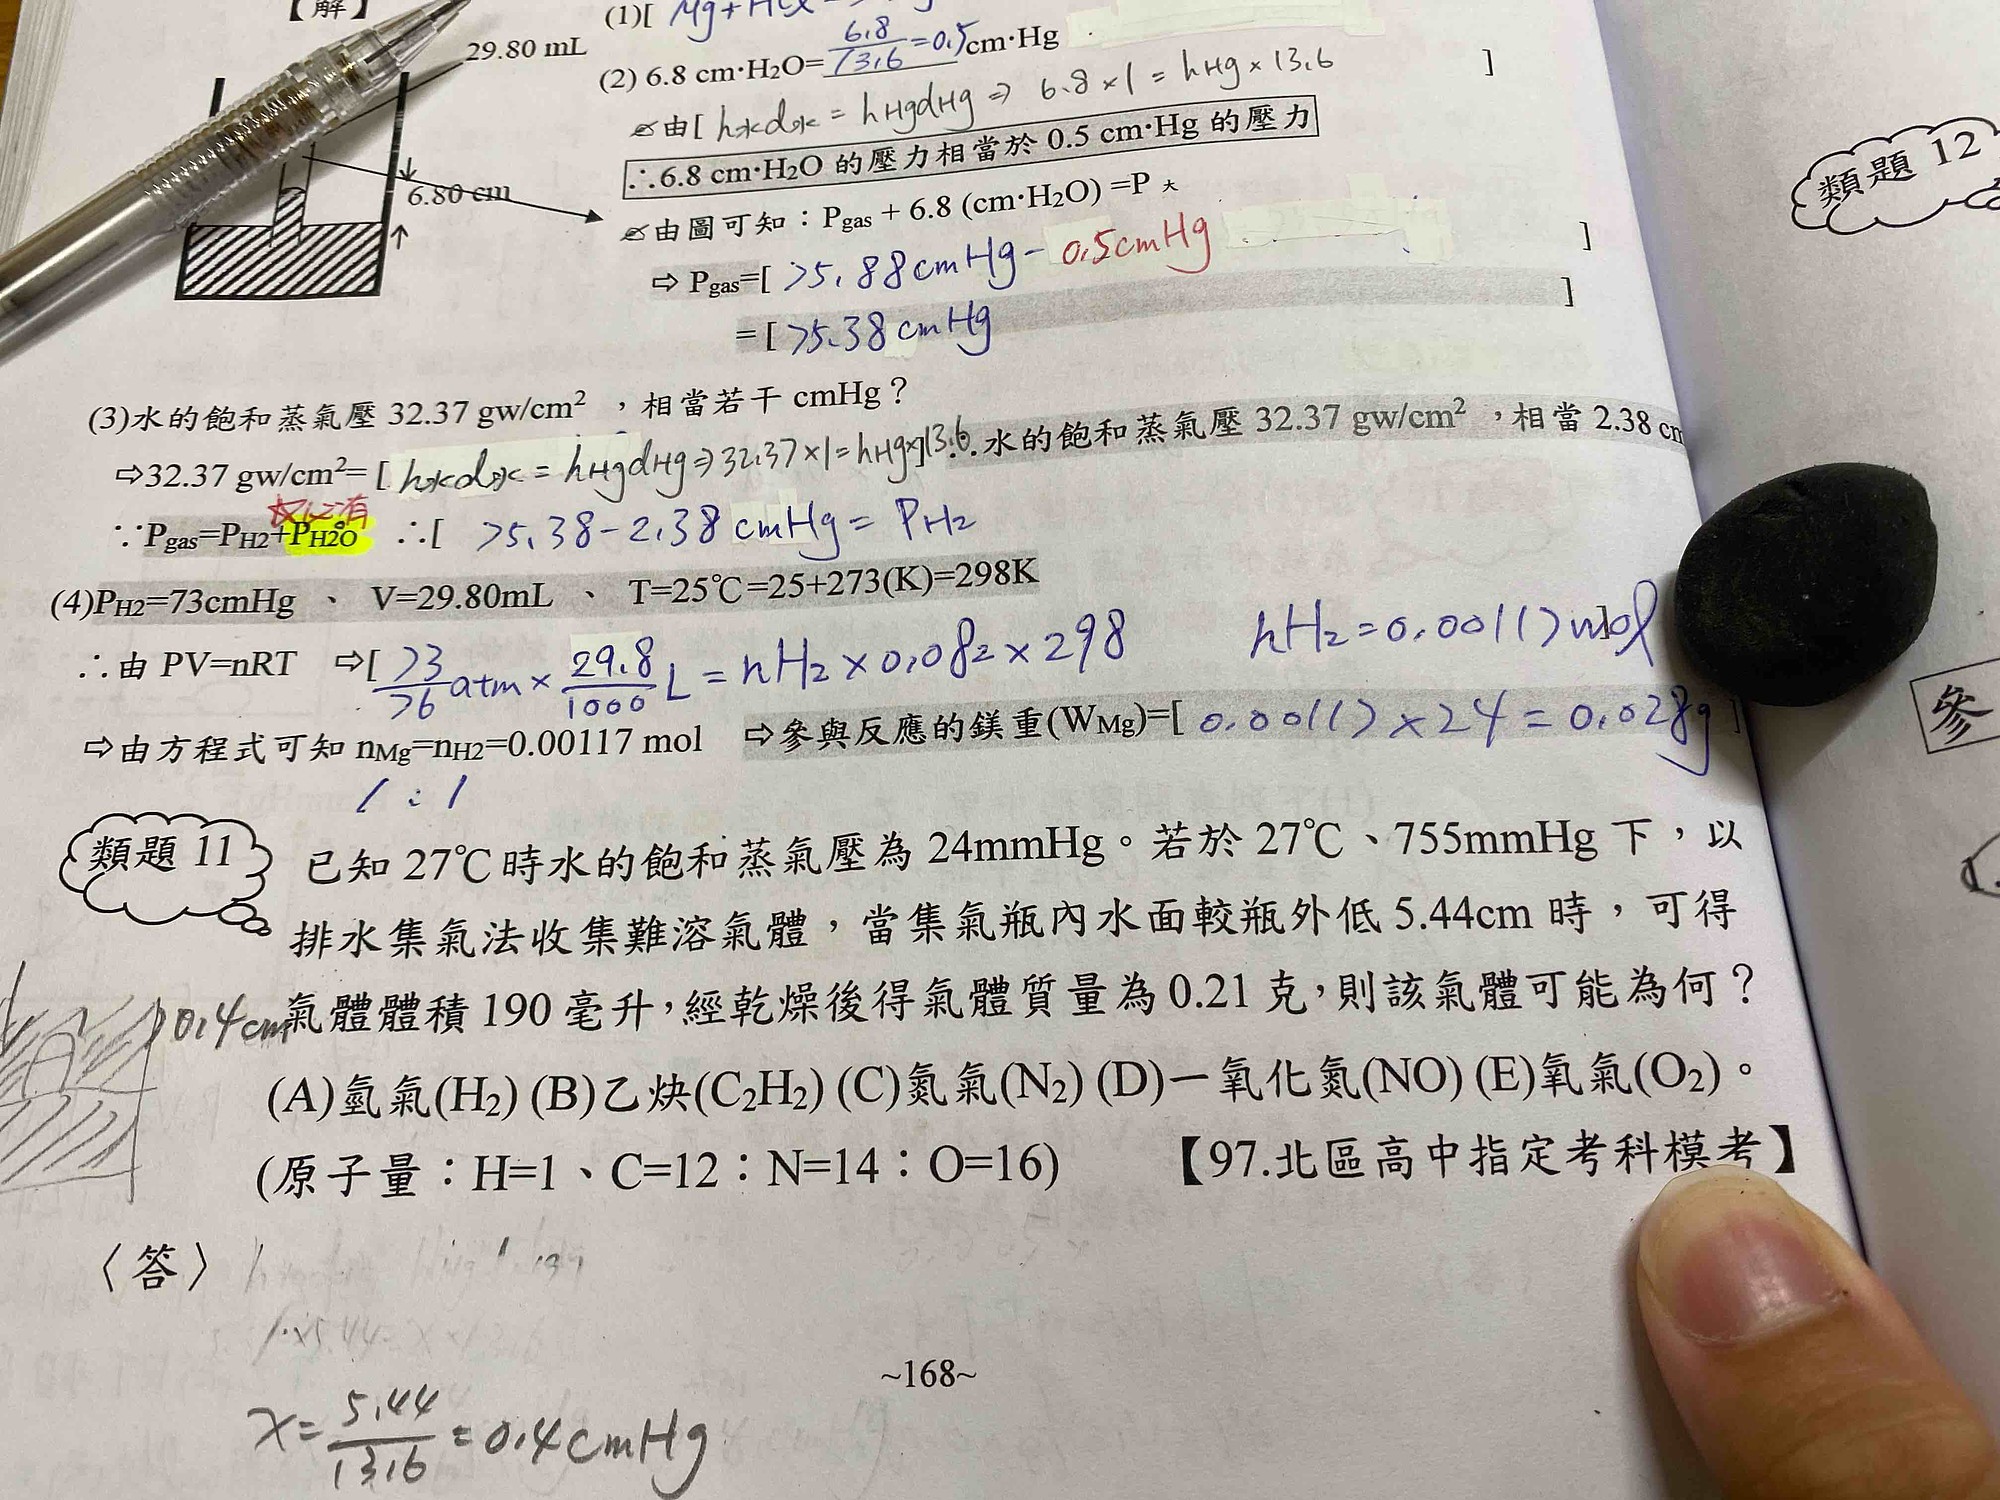 【解】
(1)[ Mg+HCl
29.80 mL
(2) 6.8 cm·H₂O= 6.8/13.6 =0.5 cm·Hg
✍由[ h水d水 = hHgdHg ⇒ 6.8×1 = hHg×13.6 ]
∴6.8 cm·H₂O 的壓力相當於 0.5 cm·Hg 的壓力
6.80 cm
✍由圖可知：Pgas + 6.8 (cm·H₂O) =P 大
⇨ Pgas=[ 75.88cmHg - 0.5cmHg ]
=[ 75.38cmHg ]
(3)水的飽和蒸氣壓 32.37 gw/cm²，相當若干 cmHg？
⇨32.37 gw/cm²=[ h水d水 = hHgdHg ⇒ 32.37×1=hHg×13.6 ]∴水的飽和蒸氣壓 32.37 gw/cm²，相當 2.38 cm
∵Pgas=PH2+PH2O ∴[ 75.38-2.38 cmHg = PH2
(4)PH2=73cmHg 、 V=29.80mL 、 T=25℃=25+273(K)=298K
∴由 PV=nRT ⇨[ 73/76 atm × 29.8/1000 L = nH₂×0.082×298 nH₂=0.00117mol ]
⇨由方程式可知 nMg=nH2=0.00117 mol ⇨參與反應的鎂重(WMg)=[ 0.00117×24=0.028g ]
1 : 1
類題 11
已知 27℃時水的飽和蒸氣壓為 24mmHg。若於 27℃、755mmHg 下，以
排水集氣法收集難溶氣體，當集氣瓶內水面較瓶外低 5.44cm 時，可得
氣體體積 190 毫升，經乾燥後得氣體質量為 0.21 克，則該氣體可能為何？
0.4cm
(A)氫氣(H₂) (B)乙炔(C₂H₂) (C)氮氣(N₂) (D)一氧化氮(NO) (E)氧氣(O₂)。
(原子量：H=1、C=12：N=14：O=16) 【97.北區高中指定考科模考】
〈答〉
1×5.44=X×13.6
x= 5.44/13.6 =0.4cmHg
~168~
類題 12
參